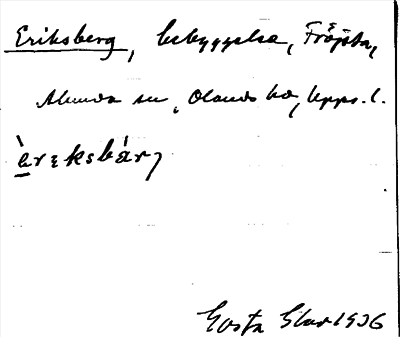 Eriksberg, bebyggelse, Fröjsta,
Alunda sn, Olands hd, Upps. l.
Gösta 1936